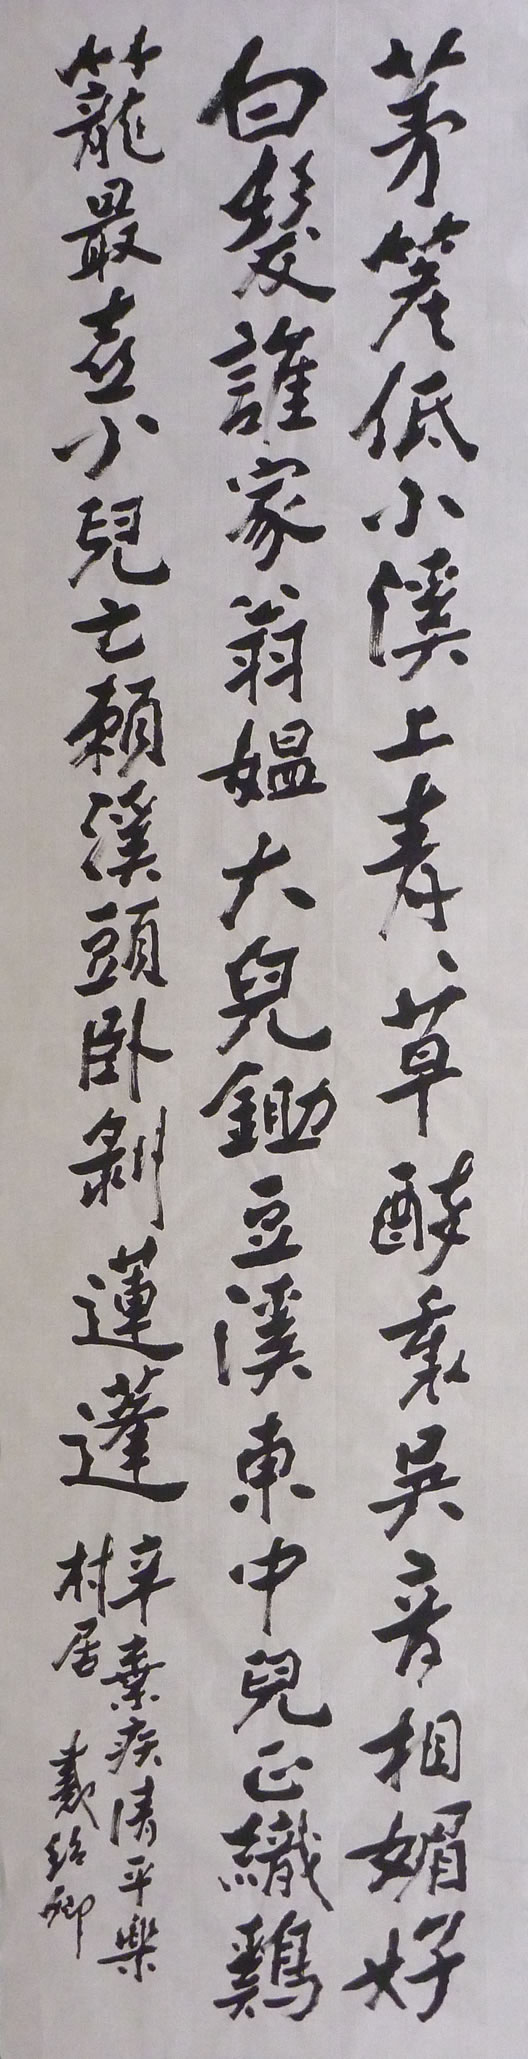 茅簷低小溪上青〻草醉裏吳音相媚好
白髮誰家翁媼大兒鋤豆溪東中兒正織鷄
籠最喜小兒亡賴溪頭卧剝蓮蓬
辛棄疾清平樂
村居